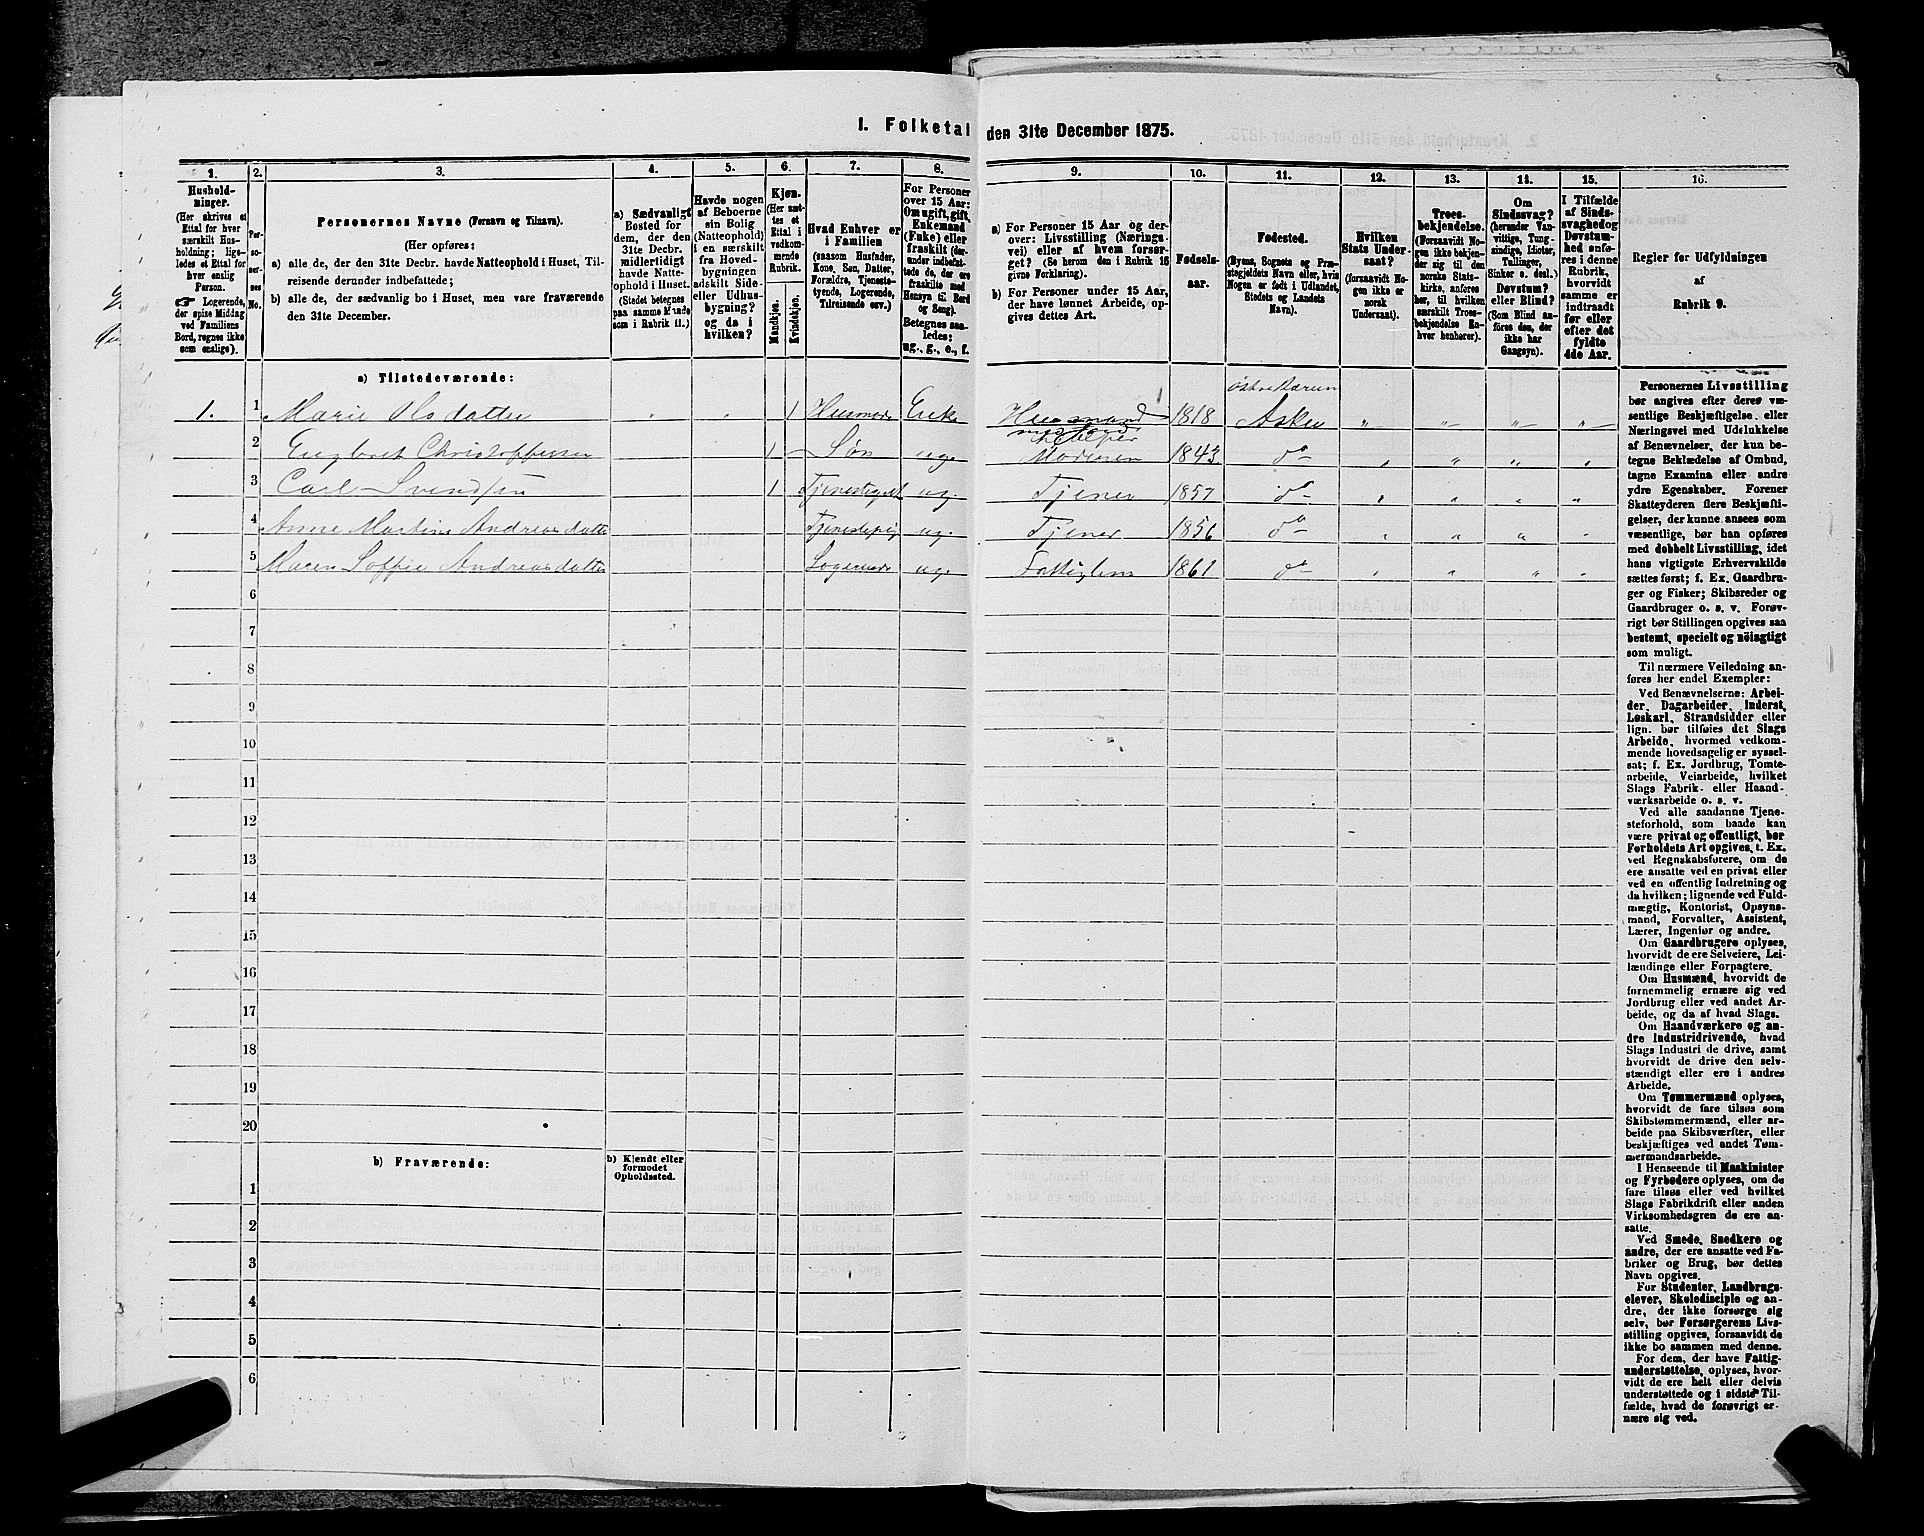 1. Folketal den 31te December 1875.
1.
Hushold-
ninger.
(Her skrives et
Ettal for hver
særskilt Hus-
holdning; lige-
ledes et Ettal for
hver enslig
Person.
☛ Logerende,
der spise Middag
ved Familiens
Bord, regnes ikke
som enslige).
2.
Per-
so-
ner-
nes
No.
3.
Personernes Navne (Fornavn og Tilnavn).
(Her opføres:
a) alle de, der den 31te Decbr. havde Natteophold i Huset, Til-
reisende derunder indbefattede;
b) alle de, der sædvanlig bo i Huset, men vare fraværende
den 31te December.
4.
a) Sædvanligt
Bosted for
dem, der den
31te Decbr.
midlertidigt
havde Natte-
ophold i Huset.
(Stedet betegnes
paa samme Maade
som i Rubrik 11.)
5.
Havde nogen
af Beboerne
sin Bolig
(Natteophold)
i en særskilt
fra Hoved-
bygningen
adskilt Side-
eller Udhus-
bygning?
og da i
hvilken?
6.
Kjøn.
(Her sæt-
tes et
Ettal i
vedkom-
mende
Rubrik.
Mandkjøn.
Kvindekjøn.
7.
Hvad Enhver er
i Familien
(saasom Husfader,
Kone, Søn, Datter,
Forældre, Tjeneste-
tyende, Logerende,
Tilreisende osv.)
8.
For Personer
over 15 Aar:
Om ugift, gift,
Enkemand
(Enke) eller
fraskilt (der-
under indbefat-
tede de, der ere
fraskilte med
Hensyn til Bord
og Seng).
Betegnes saa-
ledes:
ug., g., e., f.
9.
a) For Personer 15 Aar og der-
over: Livsstilling (Nærings-
vei) eller af hvem forsør-
get? (Se herom den i Rubrik 16
givne Forklaring).
b) For Personer under 15 Aar,
der have lønnet Arbeide, op-
gives dettes Art.
10.
Fødsels-
aar.
11.
Fødested.
(Byens, Sognets og Præ-
stegjeldets Navn eller, hvis
Nogen er født i Udlandet,
Stedets og Landets
Navn).
12.
Hvilken
Stats Under-
saat?
(forsaavidt No-
gen ikke er
norsk
Undersaat).
13.
Troes-
bekjendelse.
(Forsaavidt No-
gen ikke bekjen-
der sig til den
norske Stats-
kirke, anføres
her, til hvilken
særskilt Troes-
bekjendelse En-
hver henhører).
14.
Om
Sindssvag?
(herunder Van-
vittige, Tung-
sindige, Idioter,
Tullinger,
Sinker o. desl.)
Døvstum?
eller Blind?
(Som Blind an-
føres den, der
ikke har
Gangsyn).
15.
I Tilfælde
af Sinds-
svaghed og
Døvstum-
hed anfø-
res i denne
Rubrik,
hvorvidt
samme er
indtraadt
før eller
efter det
fyldte
4de Aar.
16.
Regler for Udfyldningen
af
Rubrik 9.
a) Tilstedeværende:
1. 1 Marie Olsdatter 1 Husmoder Enke Husmand 1818 Østre Bærum Asker
2 Engbret Christoffersen 1 Søn ug. hjelper Moderen 1843 do
3 Carl Svendsen 1 Tjenestegut ug. Tjener 1857 do
4 Anne Martine Andreasdatter Tjenestepige ug. Tjener 1856 do
5 Maren Soffie Andreasdatter Logerende ug. Fattiglem 1861 do
6
7
8
9
10
11
12
13
14
15
16
17
18
19
20
b) Fraværende:
b) Kjendt eller
formodet
Opholdssted.
1
2
3
4
5
6
Personernes Livsstilling
bør angives efter deres væ-
sentlige Beskjæftigelse eller
Næringsvei med Udelukkelse
af Benævnelser, der kun be-
tegne Beklædelse af Ombud,
tagne Examina eller andre
ydre Egenskaber. Forener
Skatteyderen flere Beskjæfti-
gelser, der kunne ansees som
væsentlige, bør han opføres
med dobbelt Livsstilling, idet
hans vigtigste Erhvervskilde
sættes først; f. Ex. Gaardbru-
ger og Fisker; Skibsreder og
Gaardbruger o. s. v. Forøv-
rigt bør Stillingen opgives saa
bestemt, specielt og nöiagtigt
som muligt.
Til nærmere Veiledning an-
føres her endel Exempler:
Ved Benævnelserne: Arbei-
der, Dagarbeider, Inderst,
Løskarl, Strandsidder eller
lign. bør tilføies det Slags
Arbeide, hvormed vedkom-
mende hovedsagelig er syssel-
sat; f. Ex. Jordbrug, Tomte-
arbeide, Veiarbeide, hvilket
Slags Fabrik- eller Haand-
værksarbeide o. s. v.
Ved alle saadanne Tjene-
steforhold, som baade kan
være privat og offentligt, bør
Forholdets Art opgives, t. Ex.
ved Regnskabsførere, om de
ere ansatte ved en privat eller
ved en offentlig Indretning og
da hvilken; lignende ved Fuld-
mægtig, Kontorist, Opsyns-
mand, Forvalter, Assistent,
Lærer, Ingeniør og andre.
Om Gaardbrugere oplyses,
hvorvidt de ere Selveiere, Lei-
lændinge eller Forpagtere.
Om Husmænd, hvorvidt de
fornemmelig ernære sig ved
Jordbrug eller ved andet Ar-
beide, og da af hvad Slags.
Om Haandværkere og an-
dre Industridrivende, hvad
Slags Industri de drive, samt
hvorvidt de drive den selv-
stændigt eller ere i andres
Arbeide.
Om Tømmermænd oplyses,
hvorvidt de fare tilsøs som
Skibstømmermænd, eller ar-
beide paa Skibsværfter, eller
beskjæftiges ved andet Tøm-
mermandsarbeide.
I Henseende til Maskinister
og Fyrbødere oplyses, om de
fare tilsøs eller ved hvilket
Slags Fabrikdrift eller anden
Virksomhedsgren de ere an-
satte.
Ved Smede, Snedkere og
andre, der ere ansatte ved Fa-
briker og Brug, bør dettes
Navn opgives.
For Studenter, Landbrugs-
elever, Skoledisciple og an-
dre, der ikke forsørge sig
selv, bør Forsørgerens Livs-
stilling opgives, forsaavidt de
ikke bo sammen med denne.
For dem, der have Fattig-
understøttelse, oplyses, hvor-
vidt de ere helt eller delvis
understøttede og i sidste Til-
fælde, hvad de forøvrigt er-
nære sig ved.